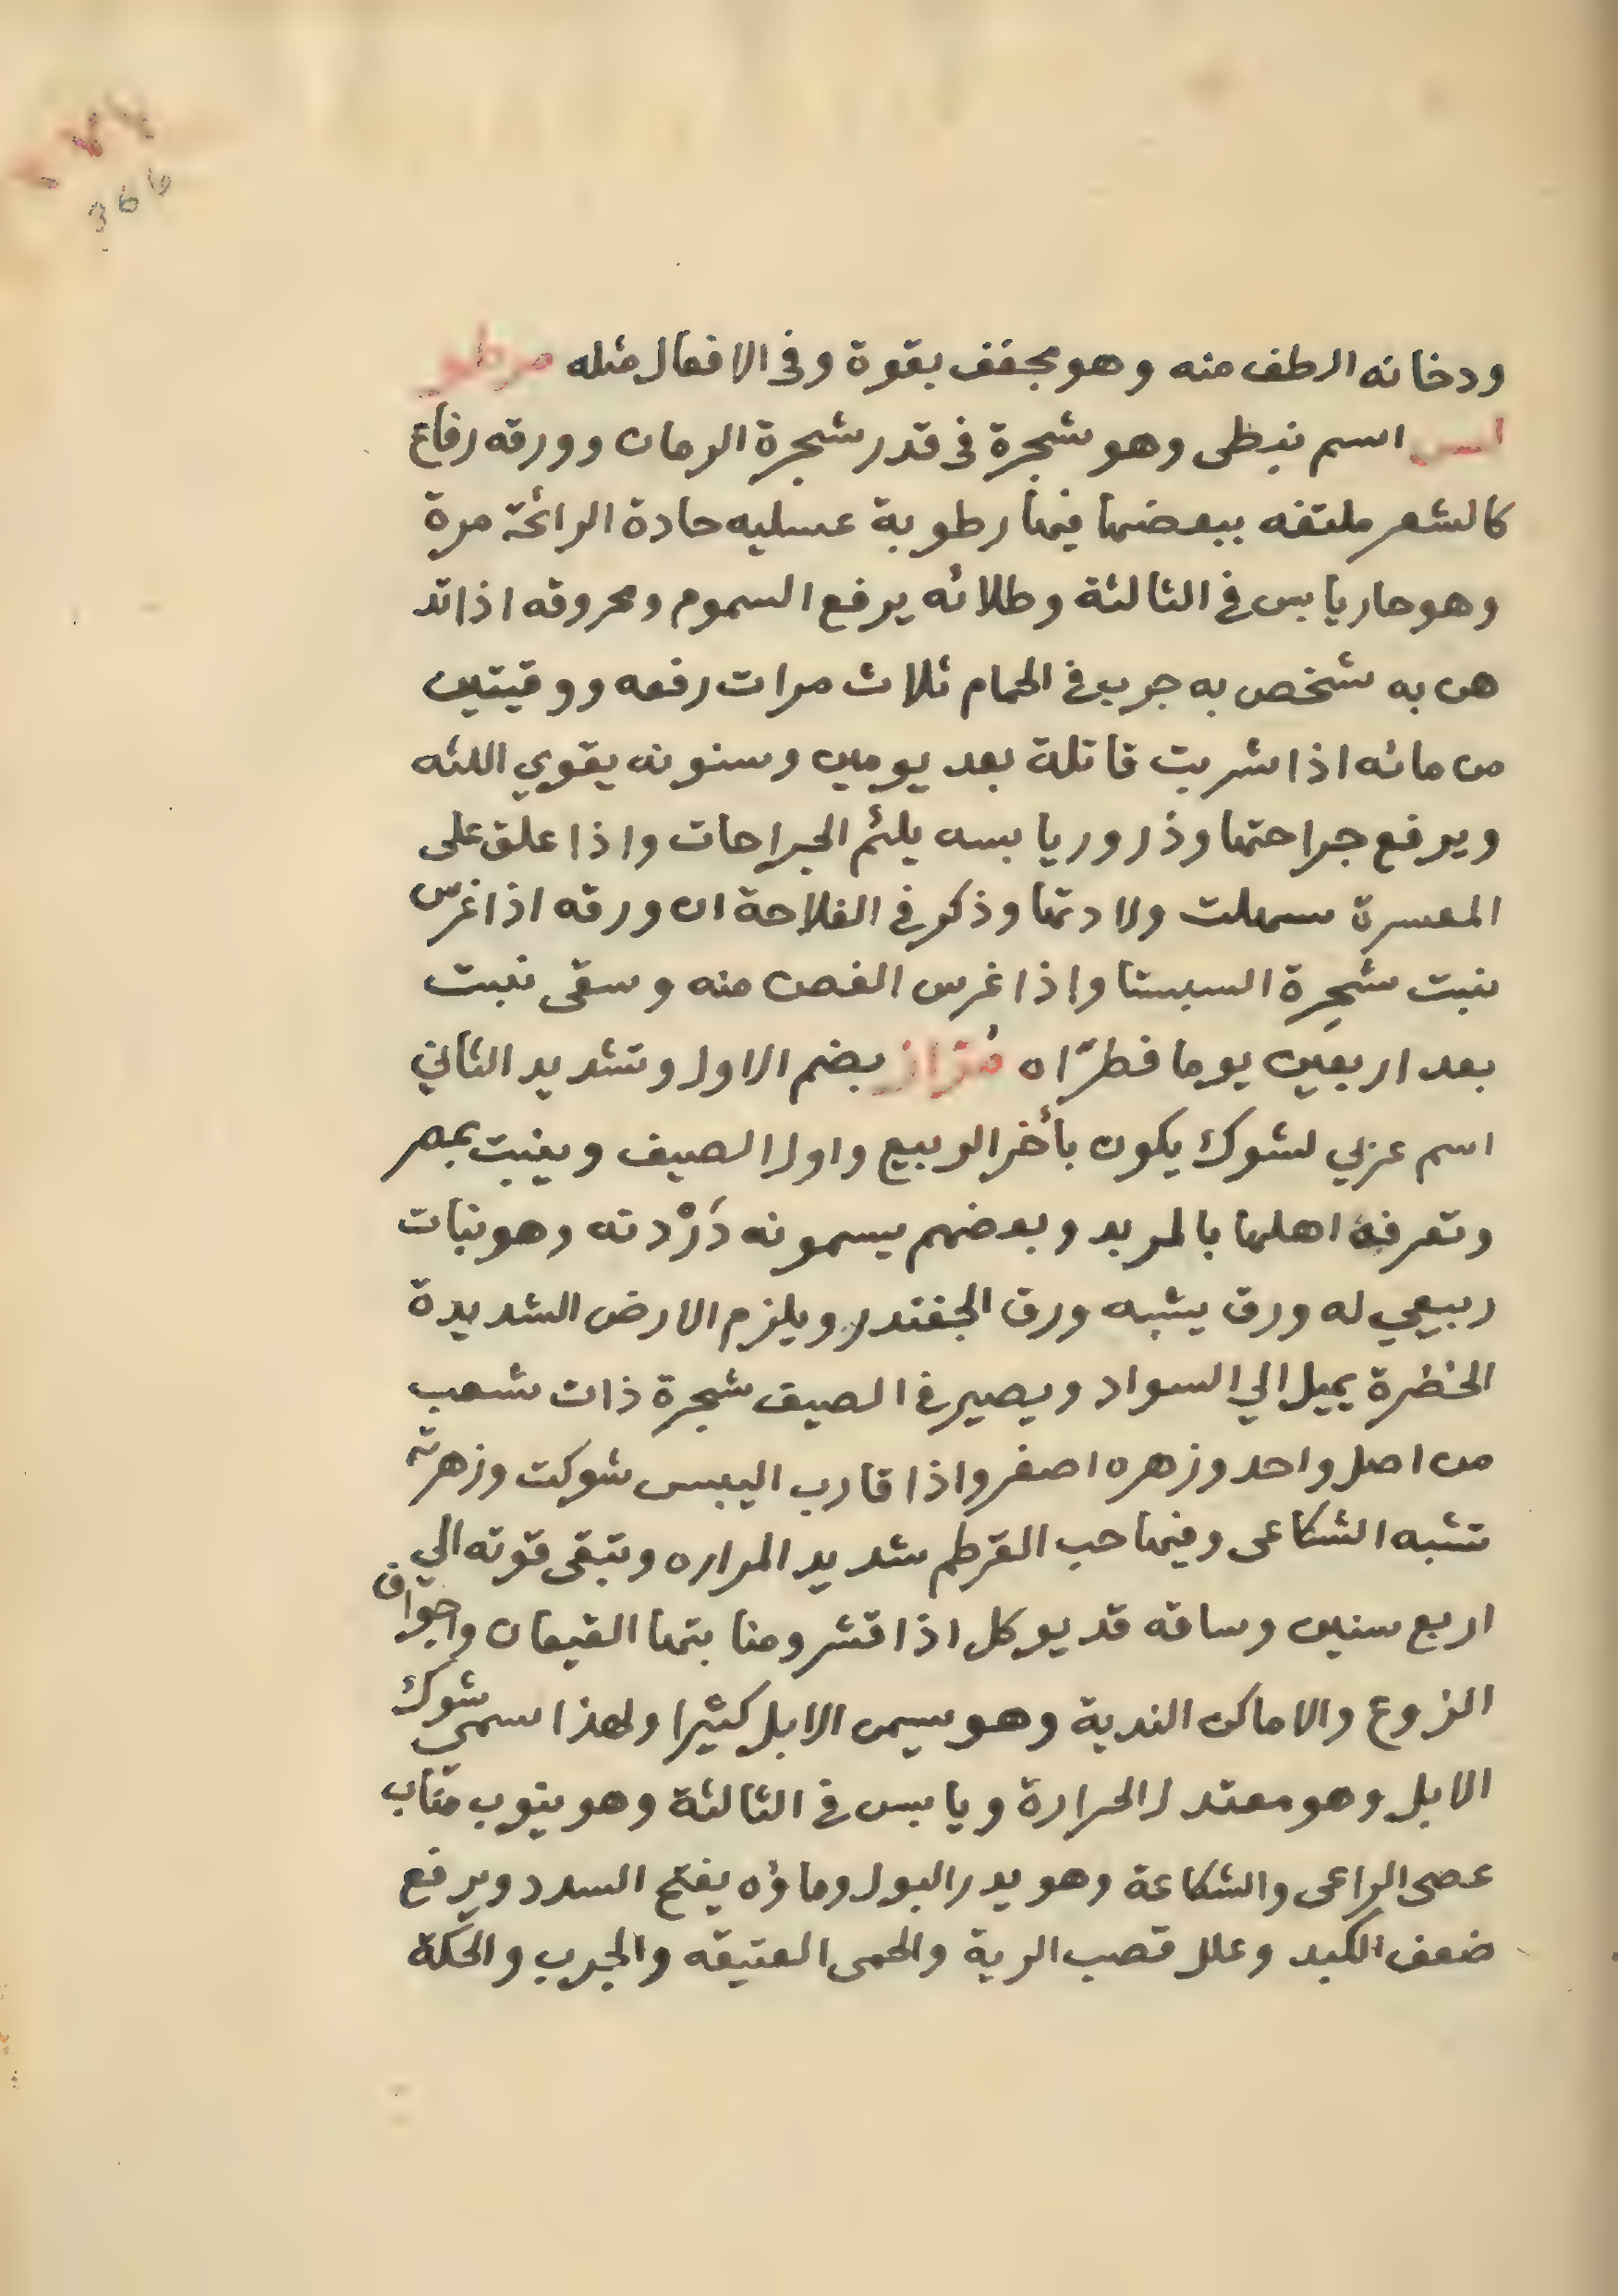 366
ودخانه الطف منه وهو مجفف بقوة وفى الافعال مثله
اسم نبطى وهو شجرة فى قدر شجرة الرمان وورقه رفاع
كالشعر ملتفه ببعضها فيها رطوبة عسليه حادة الرائحة مرة
وهو حار يابس فى الثالثة وطلائه يرفع السموم ومحروقه اذا تد
هن به شخص به جرب فى الحمام ثلاث مرات رفعه ووقيتين
من مائه اذا شربت قاتلة بعد يومين وسنونه يقوي اللثه
ويرفع جراحتها وذرور يابسه يلئم الجراحات واذا علق على
المعسرة سهلت ولادتها وذكر فى الفلاحة ان ورقه اذا غرس
نبت شجرة السبستا واذا غرس الغصن منه وسقى نبت
بعد اربعين يوما فطرّاه مُرّار بضم الاول وتشديد الثاني
اسم عربي لشوك يكون بأخر الربيع واول الصيف وينبت بمصر
وتعرفه اهلها بالمربد وبعضهم يسمونه دَرْدته وهو نبات
ربيعي له ورق يشبه ورق الجغندر ويلزم الارض الشديدة
الخظرة يميل الي السواد ويصير فى الصيف شجرة ذات شعب
من اصل واحد وزهره اصفر واذا قارب اليبس شوكت وزهرته
تشبه الشكاعى وفيها حب القرطم شديد المراره وتبقى قوته الي
اربع سنين وساقه قد يوكل اذا قشر ومنا بتها القيعان واجواف
الزروع والاماكن الندية وهو يسمن الابل كثيرا ولهذا سمي شوك
الابل وهو معتدل الحرارة ويابس فى الثالثة وهو ينوب مناب
عصى الراعى والشكاعة وهو يدر البول وماؤه يفتح السدد ويرفع
ضعف الكبد وعلل قصب الرية والحمى العتيقه والجرب والحكة